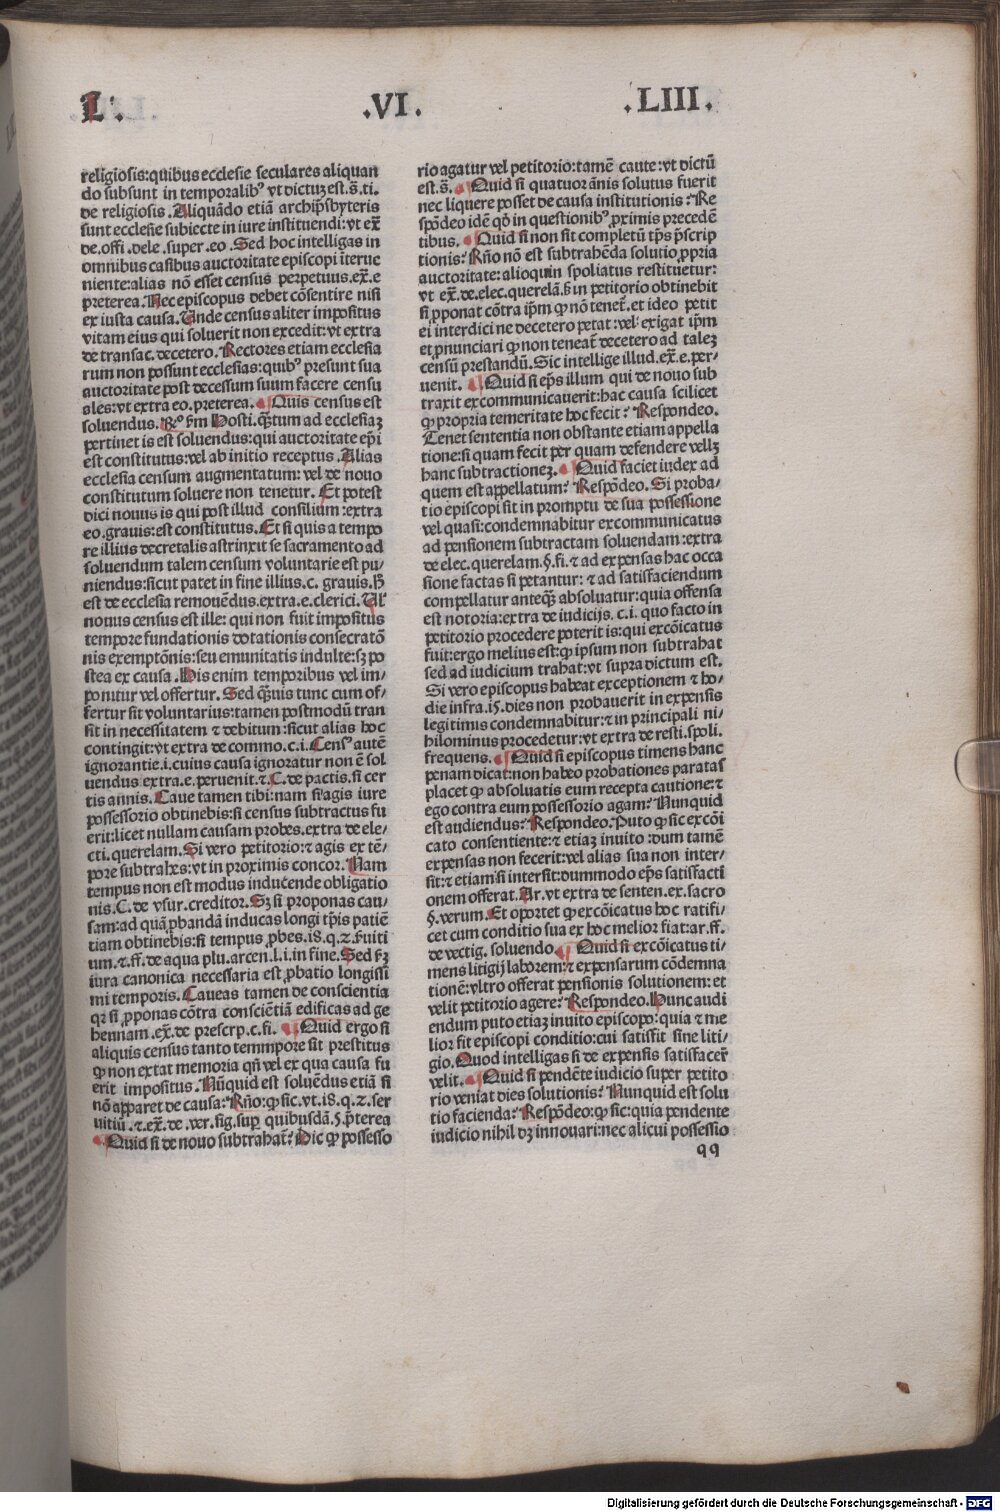 L. .VI. .LIII.
religiosis:quibus ecclesie seculares aliquan
do subsunt in temporalibꝰ vt dictuꝫ est.s̄.ti.
de religiosis. Aliquãdo etiã archip̃sbyteris
sunt ecclesie subiecte in iure instituendi:vt ex̃
de.offi.dele.super.eo. Sed hoc intelligas in
omnibus casibus auctoritate episcopi ĩterue
niente:alias nõ esset census perpetuus.ex̃.e
preterea. Nec episcopus debet cõsentire nisi
ex iusta causa. Unde census aliter impositus
vitam eius qui soluerit non excedit:vt extra
de transac.decetero. Rectores etiam ecclesia
rum non possunt ecclesias:quibꝰ presunt sua
auctoritate post decessum suum facere censu
ales:vt extra eo.preterea. ¶ Quis census est
soluendus. Rꝰ ẜm Hosti.q̃tum ad ecclesiaꝫ
pertinet is est soluendus:qui auctoritate ep̃i
est constitutus:vel ab initio receptus. Alias
ecclesia censum augmentatum: vel de nouo
constitutum soluere non tenetur. Et potest
dici nouus is qui post illud consilium:extra
eo.grauis:est constitutus. Et si quis a tempo
re illius decretalis astrinxit se sacramento ad
soluendum talem censum voluntarie est pu/
niendus:sicut patet in fine illius.c. grauis.
est de ecclesia remouẽdus.extra.e.clerici. Al̃
nouus census est ille: qui non fuit impositus
tempore fundationis dotationis consecratõ
nis exemptõnis:seu emunitatis indulte:sꝫ po
stea ex causa. His enim temporibus vel im/
ponitur vel offertur. Sed q̃uis tunc cum of/
fertur sit voluntarius:tamen postmodũ tran
sit in necessitatem ⁊ debitum:sicut alias hoc
contingit:vt extra de commo.c.i. Censꝰ autẽ
ignorantie.i.cuius causa ignoratur non ẽ sol
uendus extra.e.peruenit.⁊.C.de pactis.si cer
tis annis. Caue tamen tibi:nam si agis iure
possessorio obtinebis:si census subtractus fu
erit:licet nullam causam probes.extra de ele/
cti.querelam. Si vero petitorio:⁊ agis ex tẽ/
pore subtrahes:vt in proximis concor. Nam
tempus non est modus inducende obligatio
nis.C.de vsur.creditor. Sꝫ si proponas cau/
sam:ad quã ꝓbandã inducas longi tp̃is patiẽ
tiam obtinebis:si tempus ꝓbes.i8.q.2.
um.⁊.ff.de aqua plu.arcen.l.i.in fine. Sed ẜꝫ
iura canonica necessaria est ꝓbatio longissi
mi temporis. Caueas tamen de conscientia
qꝛ si ꝓponas cõtra consciẽtiã edificas ad ge
hennam.ex̃.de prescrp.c.fi. ¶ Quid ergo si
aliquis census tanto temmpore sit prestitus
ꝙ non extat memoria qñ vel ex qua causa fu
erit impositus. Nũquid est soluẽdus etiã si
nõ apparet de causa: Rño:ꝙ sic.vt.i8.q.2.ser
uitiũ.⁊.ex̃.de.ver.sig.sup̲ quibusdã.§.p̃terea
¶ Quid si de nouo subtrahat̃: Dic ꝙ possesso
rio agatur vel petitorio:tamẽ caute:vt dictũ
est.s̄. ¶ Quid si quatuor ãnis solutus fuerit
nec liquere posset de causa institutionis: Re
spõdeo idẽ qð in questionibꝰ ꝓximis precedẽ
tibus. ¶ Quid si non sit completũ tp̃s p̃scrip
tionis: Rño nõ est subtrahẽda solutio ꝓpria
auctoritate:alioquin spoliatus restituetur:
vt ex̃.de.elec.querelã.ß in petitorio obtinebit
si ꝓponat cõtra ip̃m ꝙ nõ tenet̃.et ideo petit
ei interdici ne decetero petat:vel exigat ip̃m
et ꝓnunciari ꝙ non teneat̃ decetero ad taleꝫ
censũ prestandũ. Sic intellige illud.ex̃.e.per/
uenit. ¶ Quid si ep̃s illum qui de nouo sub
traxit excommunicauerit:hac causa scilicet
ꝙ propria temeritate hoc fecit: Respondeo.
Tenet sententia non obstante etiam appella
tione:si quam fecit per quam defendere velleꝫ
hanc subtractioneꝫ. ¶ Quid faciet iudex ad
quem est appellatum: Respõdeo. Si proba/
tio episcopi sit in promptu de sua possessione
vel quasi:condemnabitur excommunicatus
ad pensionem subtractam soluendam:extra
de elec.querelam.§.fi.⁊ ad expensas hac occa
sione factas si petantur: ⁊ ad satisfaciendum
compellatur anteq̃ absoluatur:quia offensa
est notoria:extra de iudicijs.c.i. quo facto in
petitorio procedere poterit is:qui excõicatus
fuit:ergo melius est:ꝙ ipsum non subtrahat
sed ad iudicium trahat:vt supra dictum est.
Si vero episcopus habeat exceptionem ⁊ ho/
die infra.i5.dies non probauerit in expensis
legitimis condemnabitur:⁊ in principali ni/
hilominus procedetur:vt extra de resti.spoli.
frequens. ¶ Quid si episcopus timens hanc
penam dicat:non habeo probationes paratas
placet ꝙ absoluatis eum recepta cautione:⁊
ego contra eum possessorio agam: Nunquid
est audiendus: Respondeo. Puto ꝙ sic excõi
cato consentiente:⁊ etiaꝫ inuito:dum tamẽ
expensas non fecerit:vel alias sua non inter/
sit:⁊ etiam si intersit:dummodo ep̃s satisfacti
onem offerat. Ar.vt extra de senten.ex.sacro
§.verum. Et oportet ꝙ excõicatus hoc ratifi/
cet cum conditio sua ex hoc melior fiat:ar.ff.
de vectig. soluendo. ¶ Quid si excõicatus ti/
mens litigij laborem:⁊ expensarum cõdemna
tionẽ:vltro offerat pensionis solutionem: et
velit petitorio agere: Respondeo. Hunc audi
endum puto etiaꝫ inuito episcopo:quia ⁊ me
lior fit episcopi conditio:cui satisfit sine liti/
gio. Quod intelligas si de expensis satisfacer̃
velit. ¶ Quid si pendẽte iudicio super petito
rio veniat dies solutionis: Nunquid est solu
tio facienda: Respõdeo:ꝙ sic:quia pendente
iudicio nihil dꝫ innouari:nec alicui possessio
qq
Digitalisierung gefördert durch die Deutsche Forschungsgemeinschaft - DFG